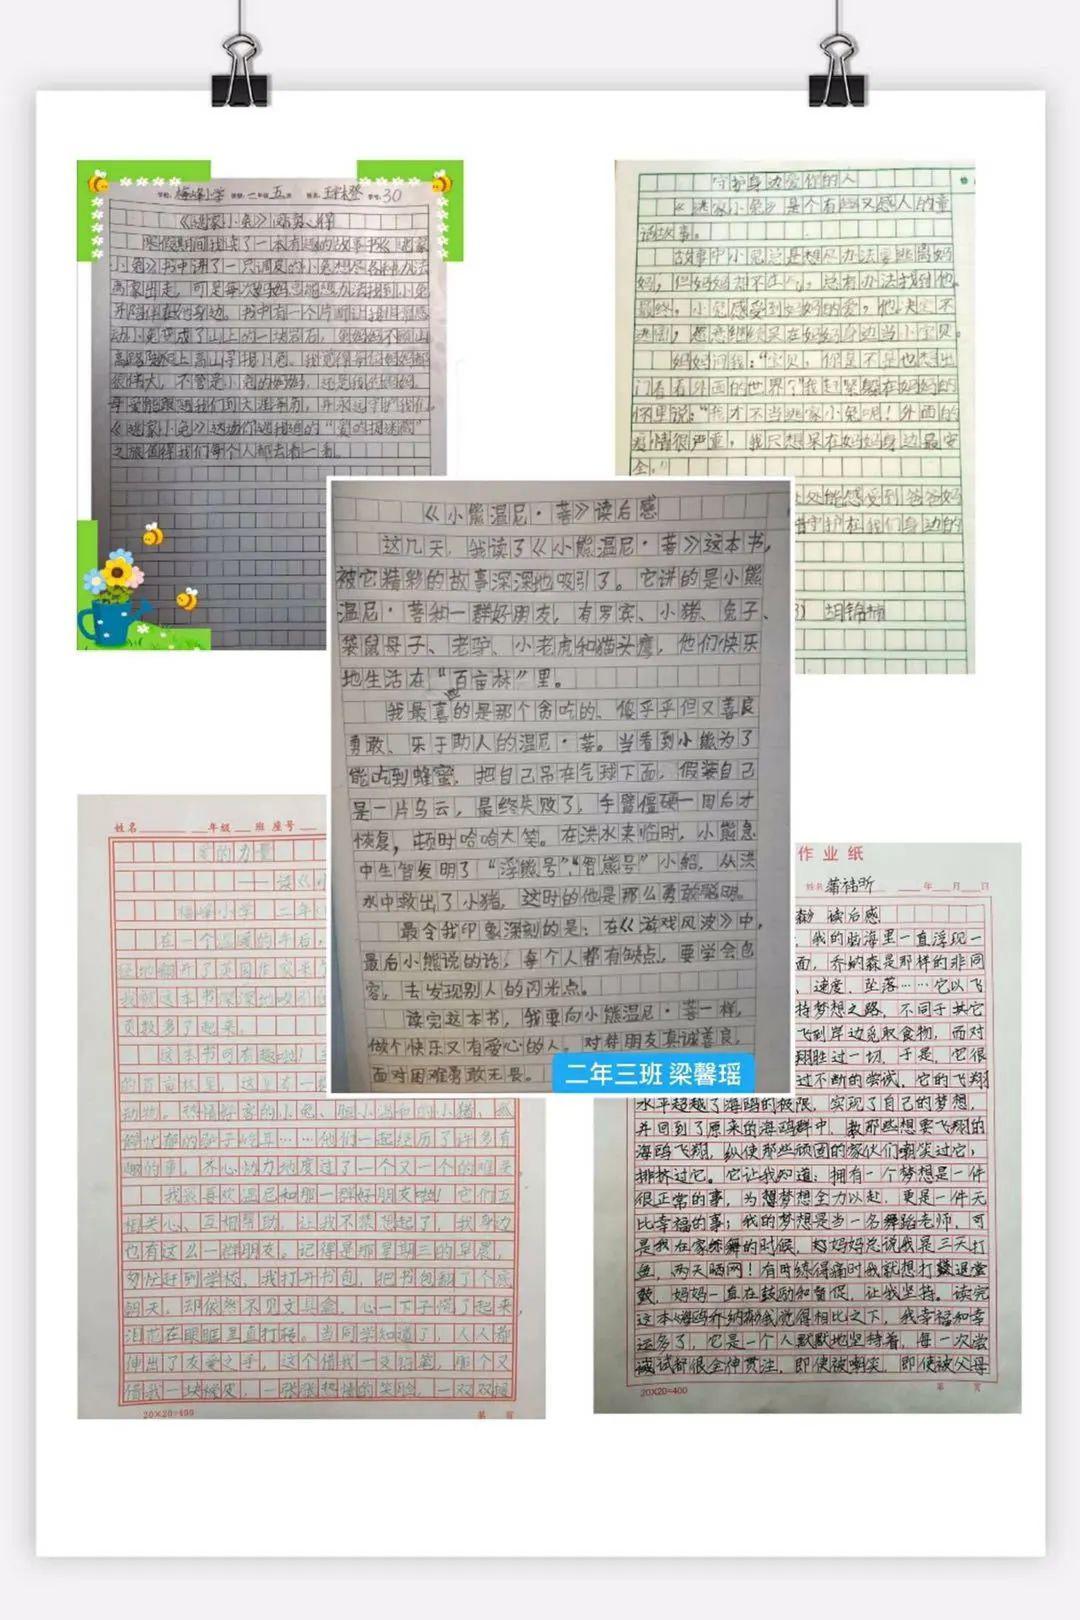 学校：梅峰小学 班级：一年级五班 姓名： 座号：30
《逃家小兔》阅读心得
寒假期间我读了一本有趣的故事书《逃家
小兔》书中讲了一只调皮的小兔想尽各种办法
离家出走，可是每次妈妈总能想办法找到小兔
并陪伴在的身边。书中有一个片断让我印
动小兔变成了山上的一块岩石，妈妈不顾山
高路陡爬上高山寻找小兔。我觉得
很伟大，不管是小兔的妈妈，还是我的妈妈。
母爱能跟随我们到天涯海角，并永远守护我们。
《逃家小兔》这场你逃我追的“爱的捉迷藏”
之旅值得我们每个人都去看一看。
守护身边爱你的人
《逃家小兔》是个有趣又感人的童
话故事。
故事中小兔总是想尽办法要逃离妈
妈，但妈妈却不 总有办法找到他。
最终，小兔感受到妈妈的爱，他决定不
逃离，愿意继续呆在妈妈身边当小宝贝。
妈妈问我：“宝贝，你是不是也想出
门看看外面的世界？”我赶紧躲在妈妈的
怀里说：“我才不当逃家小兔呢！外面的
疫情很严重，我只想呆在妈妈身边最安
全。”
处处能感受到爸爸妈
守护在我们身边的
胡锦楠
《小熊温尼·菩》读后感
这几天，我读了《小熊温尼·菩》这本书，
被它精彩的故事深深地吸引了。它讲的是小熊
温尼·菩和一群好朋友，有罗宾、小猪、兔子、
袋鼠母子、老驴、小老虎和猫头鹰，他们快乐
地生活在“百亩林”里。
我最喜欢的是那个贪吃的、傻乎乎但又善良
勇敢、乐于助人的温尼·菩。当看到小熊为了
能吃到蜂蜜，把自己吊在气球下面，假装自己
是一片乌云，最终失败了，手臂僵硬一周后才
恢复，顿时哈哈大笑。在洪水来临时，小熊急
中生智发明了“浮熊号”、“智熊号”小船，从洪
水中救出了小猪，这时的他是那么勇敢聪明。
最令我印象深刻的是：在《游戏风波》中，
最后小熊说的话，每个人都有缺点，要学会包
容，去发现别人的闪光点。
读完这本书，我要向小熊温尼·菩一样，
做个快乐又有爱心的人。对待朋友真诚善良，
面对困难勇敢无畏。
二年三班 梁馨瑶
姓名 年级 班 座号
爱的力量
——读《小
梅峰小学 二年
在一个温暖的午后，
轻地翻开了英国作家米
我就这本书深深地吸引
页数多了起来。
这本书可有趣啦！
的百亩林里，这儿有一
动物。热情好客的小兔、胆小温和的小猪、孤
僻忧郁的驴子咿耳……他们一起经历了许多有
趣的事，齐心协力地度过了一个又一个的难关。
我最喜欢温尼和那一群好朋友啦！它们互
相关心、互相帮助，让我不禁想起了，我身边
也有这么一群朋友。记得是那星期三的早晨，
匆忙赶到学校，我打开书包，把书包翻了个底
朝天，却依然不见文具盒，心一下子慌了起来，
泪花在眼眶里直打转。当同学知道了，人人都
伸出了友爱之手，这个借我一支铅笔，那个又
借我一块橡皮，一张张热情的笑脸，一双双援
20×20=400 第 页
作业纸
姓名 年 月 日
森》读后感
，我的脑海里一直浮现一
面，乔纳森是那样的非同
、速度、坠落……它以飞
持梦想之路，不同于其它
飞到岸边觅取食物，而对
翔胜过一切，于是，它很
过不断的尝试，它的飞翔
水平超越了海鸥的极限，实现了自己的梦想，
并回到了原来的海鸥群中，教那些想要飞翔的
海鸥飞翔，纵使那些顽固的家伙们嘲笑过它，
排挤过它。它让我知道：拥有一个梦想是一件
很正常的事，为梦想全力以赴，更是一件无
比幸福的事；我的梦想是当一名舞蹈老师，可
是我在家练舞的时候，妈妈总说我是三天打
鱼，两天晒网！有时练得痛时我就想打退堂
鼓，妈妈一直在鼓励和督促，让我坚持。读完
这本《海鸥乔纳森》我觉得相比之下，我幸福和幸
运多了，它是一个人默默地坚持着，每一次尝
试都很全神贯注，即使被嘲笑，即使被父母
20×20=400 第 页